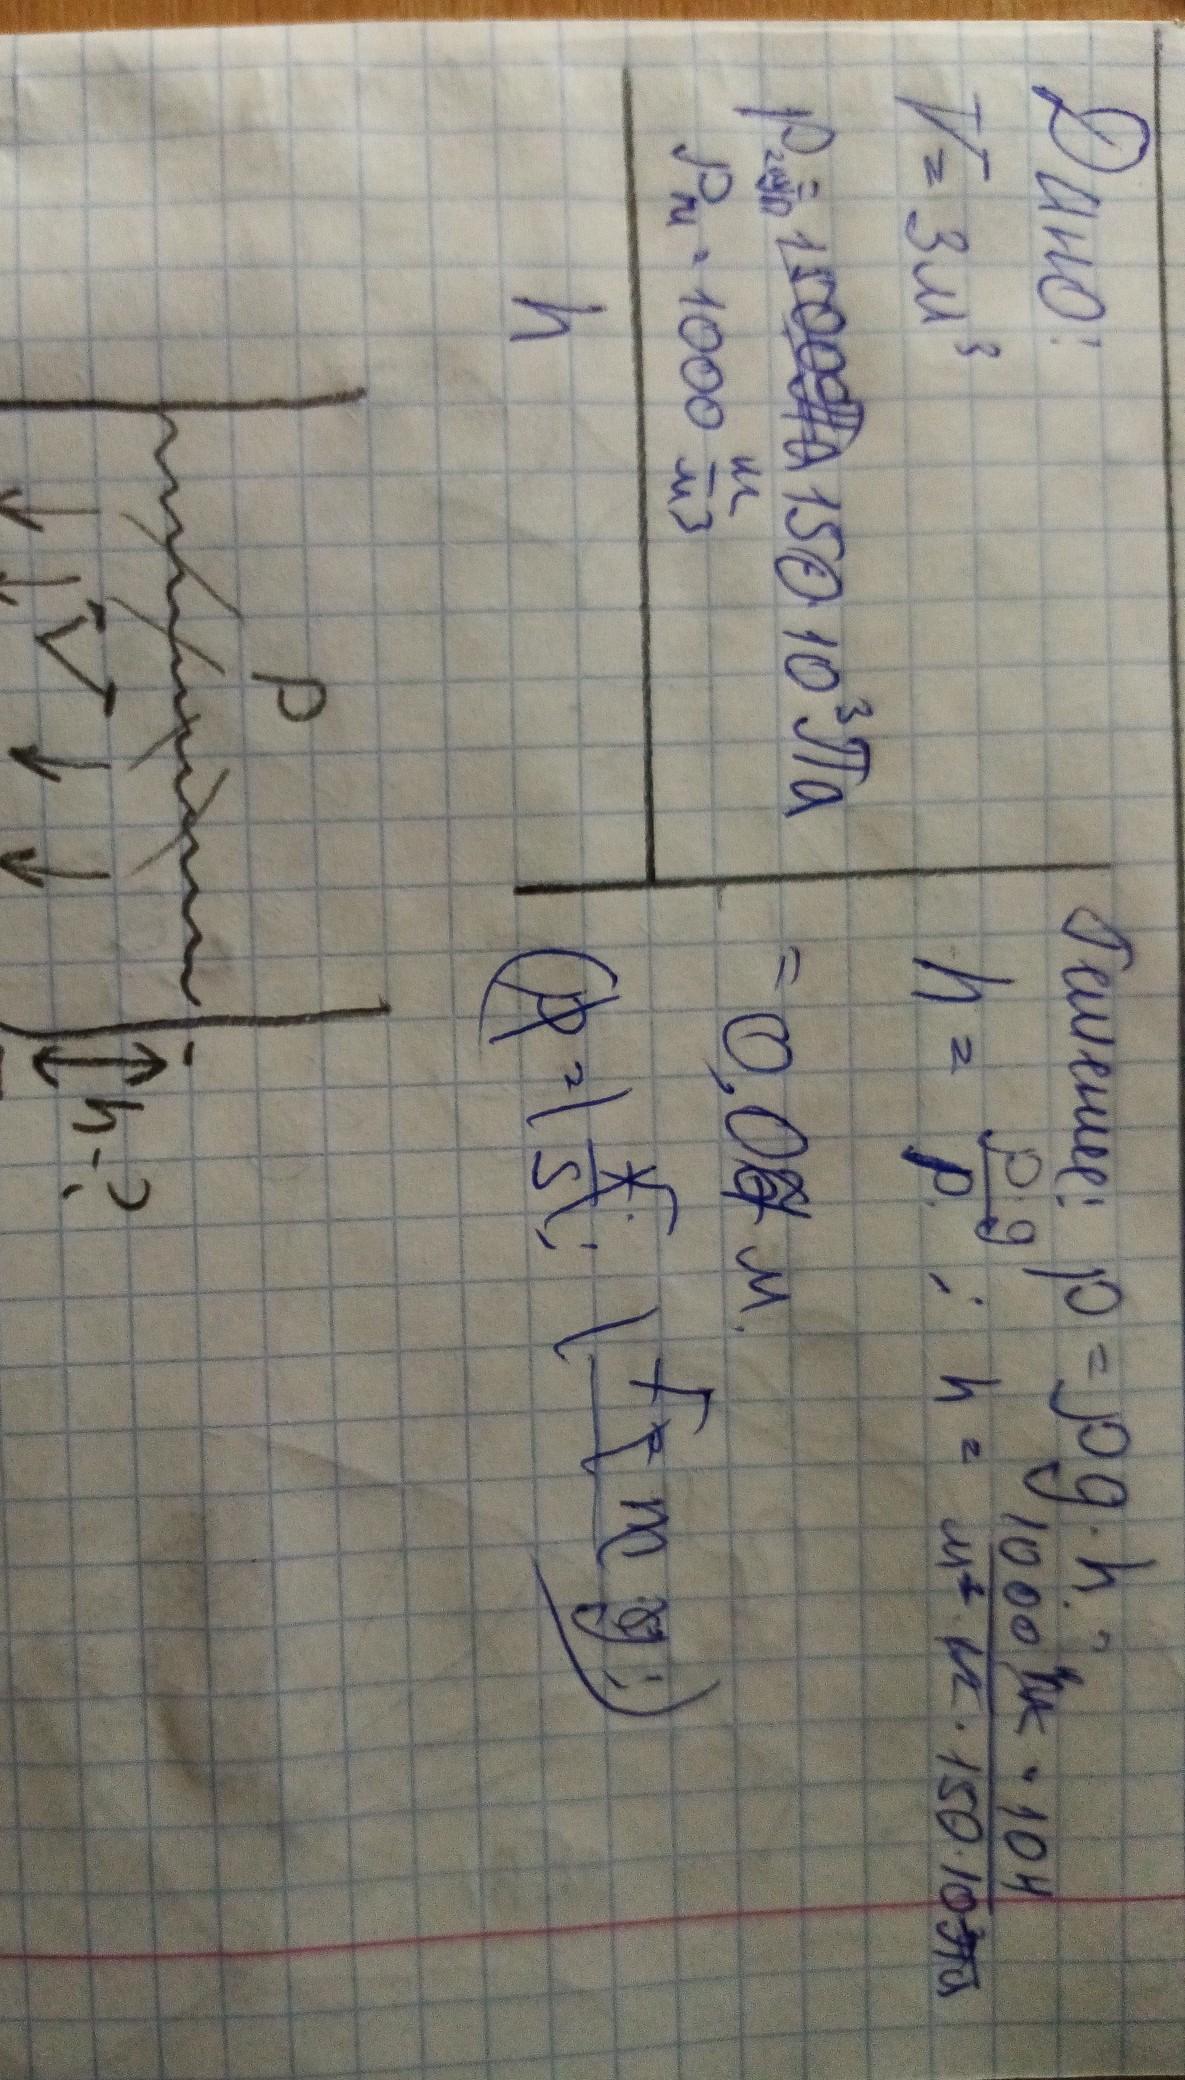 Дано:
V = 3м³
= 150 · 10³ Па
ρ = 1000 кг/м³
h
Решение: p = ρg · h;
h = ρ · g / p ; h = 1000 кг · 10 Н / м³ · кг · 150 · 10³ Па
= 0,0 м.
p = F / S ;
F = m g ;
p
h - ?